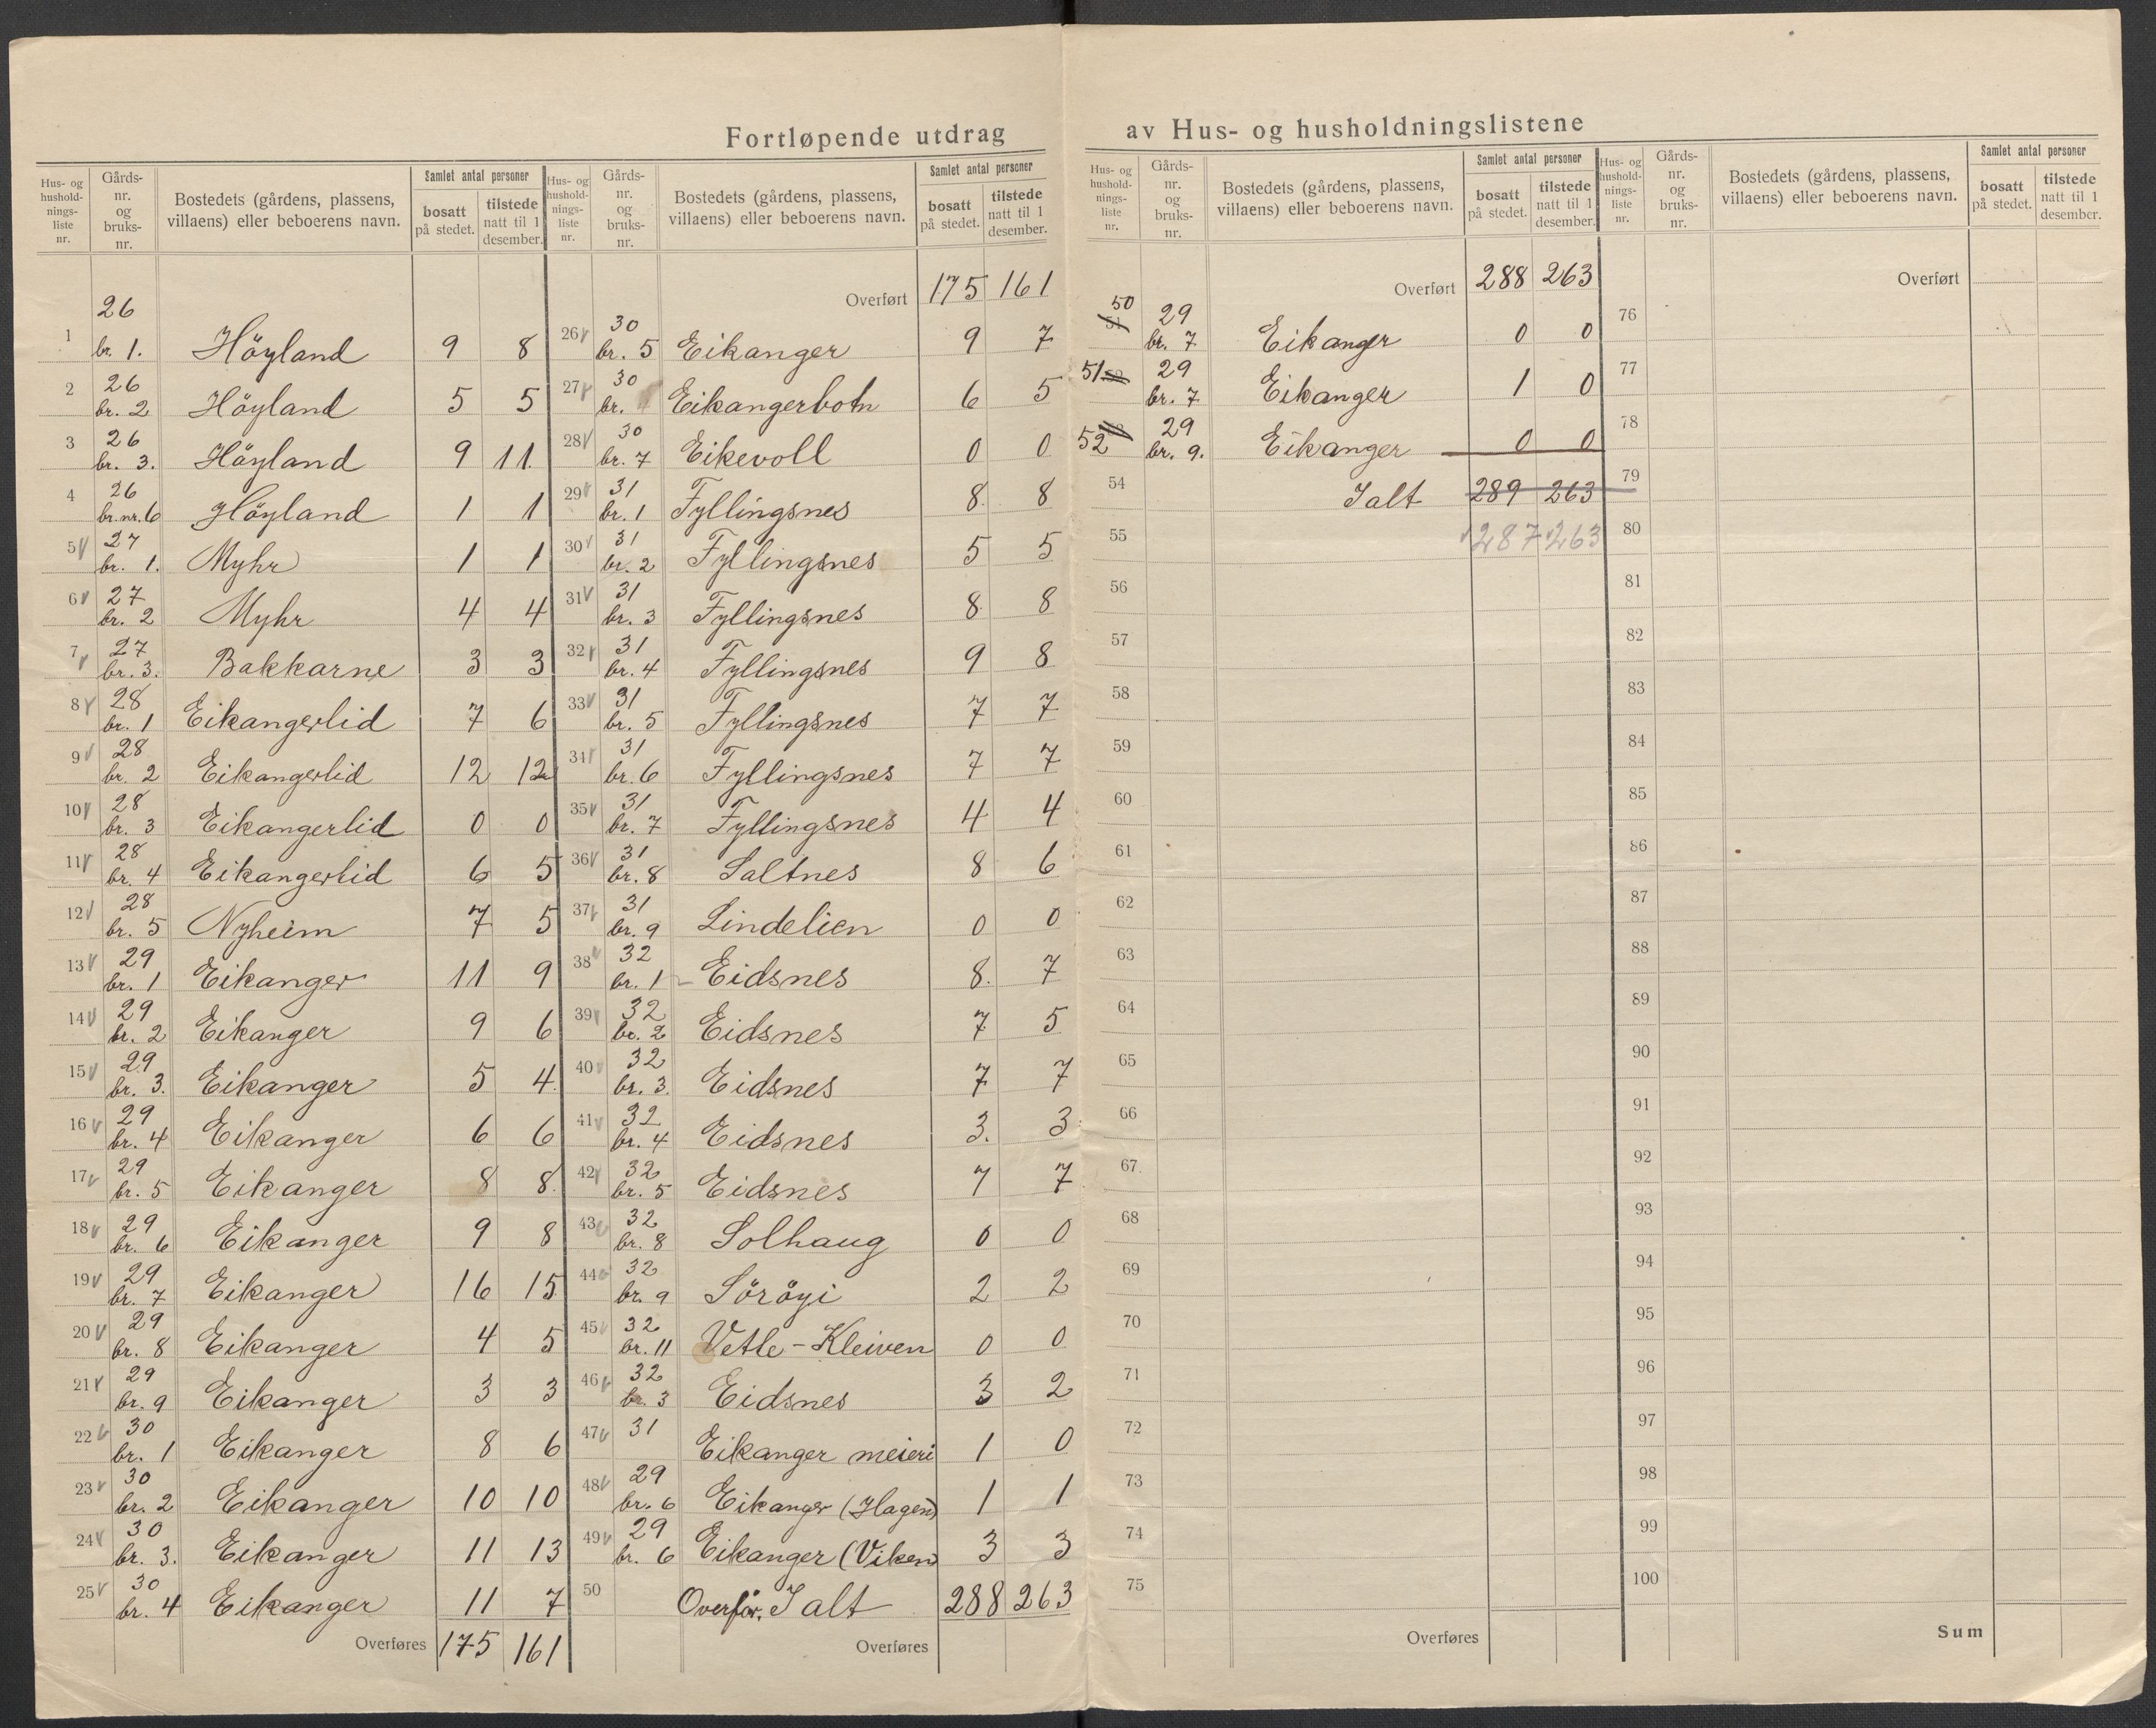 Fortløpende utdrag av Hus- og husholdningslistene
Hus- og husholdningsliste nr. Gårds-nr. og bruks-nr. Bostedets (gårdens, plassens, villaens) eller beboerens navn. Samlet antal personer bosatt på stedet. tilstede natt til 1 desember.
1 26 br. 1. Höyland 9 8
2 26 br. 2 Höyland 5 5
3 26 br. 3. Höyland 9 11
4 26 br.nr.6 Höyland 1 1
5 27 br. 1. Myhr 1 1
6 27 br. 2 Myhr 4 4
7 27 br. 3. Bakkarne 3 3
8 28 br. 1 Eikangerlid 7 6
9 28 br. 2 Eikangerlid 12 12
10 28 br. 3 Eikangerlid 0 0
11 28 br. 4 Eikangerlid 6 5
12 28 br. 5 Nyheim 7 5
13 29 br. 1 Eikanger 11 9
14 29 br. 2 Eikanger 9 6
15 29 br. 3. Eikanger 5 4
16 29 br. 4 Eikanger 6 6
17 29 br. 5 Eikanger 8 8
18 29 br. 6 Eikanger 9 8
19 29 br. 7 Eikanger 16 15
20 29 br. 8 Eikanger 4 5
21 29 br. 9 Eikanger 3 3
22 30 br. 1 Eikanger 8 6
23 30 br. 2 Eikanger 10 10
24 30 br. 3. Eikanger 11 13
25 30 br. 4 Eikanger 11 7
Overføres 175 161
Hus- og husholdningsliste nr. Gårds-nr. og bruks-nr. Bostedets (gårdens, plassens, villaens) eller beboerens navn. Samlet antal personer bosatt på stedet. tilstede natt til 1 desember.
Overført 175 161
26 30 br. 5 Eikanger 9 7
27 30 br. Eikangerbotn 6 5
28 30 br. 7 Eikevoll 0 0
29 31 br. 1 Fyllingsnes 8 8
30 31 br. 2 Fyllingsnes 5 5
31 31 br. 3 Fyllingsnes 8 8
32 31 br. 4 Fyllingsnes 9 8
33 31 br. 5 Fyllingsnes 7 7
34 31 br. 6 Fyllingsnes 7 7
35 31 br. 7 Fyllingsnes 4 4
36 31 br. 8 Saltnes 8 6
37 31 br. 9 Lindelien 0 0
38 32 br. 1 Eidsnes 8 7
39 32 br. 2 Eidsnes 7 5
40 32 br. 3 Eidsnes 7 7
41 32 br. 4 Eidsnes 3. 3
42 32 br. 5 Eidsnes 7 7
43 32 br. 8 Solhaug 0 0
44 32 br. 9 Söröyi 2 2
45 32 br. 11 Vetle-Kleiven 0 0
46 32 br. 3 Eidsnes 3 2
47 31 Eikanger meieri 1 0
48 29 br. 6 Eikanger (Hagen) 1 1
49 29 br. 6 Eikanger (Viken) 3 3
50 Overför. I alt 288 263
Overføres
Hus- og husholdningsliste nr. Gårds-nr. og bruks-nr. Bostedets (gårdens, plassens, villaens) eller beboerens navn. Samlet antal personer bosatt på stedet. tilstede natt til 1 desember.
Overført 288 263
50 51 29 br. 7 Eikanger 0 0
51 29 br. 7 Eikanger 1 0
52 29 br. 9. Eikanger 0 0
54 Ialt 289 263
55 287 263
56
57
58
59
60
61
62
63
64
65
66
67
68
69
70
71
72
73
74
75
Overføres
Hus- og husholdningsliste nr. Gårds-nr. og bruks-nr. Bostedets (gårdens, plassens, villaens) eller beboerens navn. Samlet antal personer bosatt på stedet. tilstede natt til 1 desember.
Overført
76
77
78
79
80
81
82
83
84
85
86
87
88
89
90
91
92
93
94
95
96
97
98
99
100
Sum